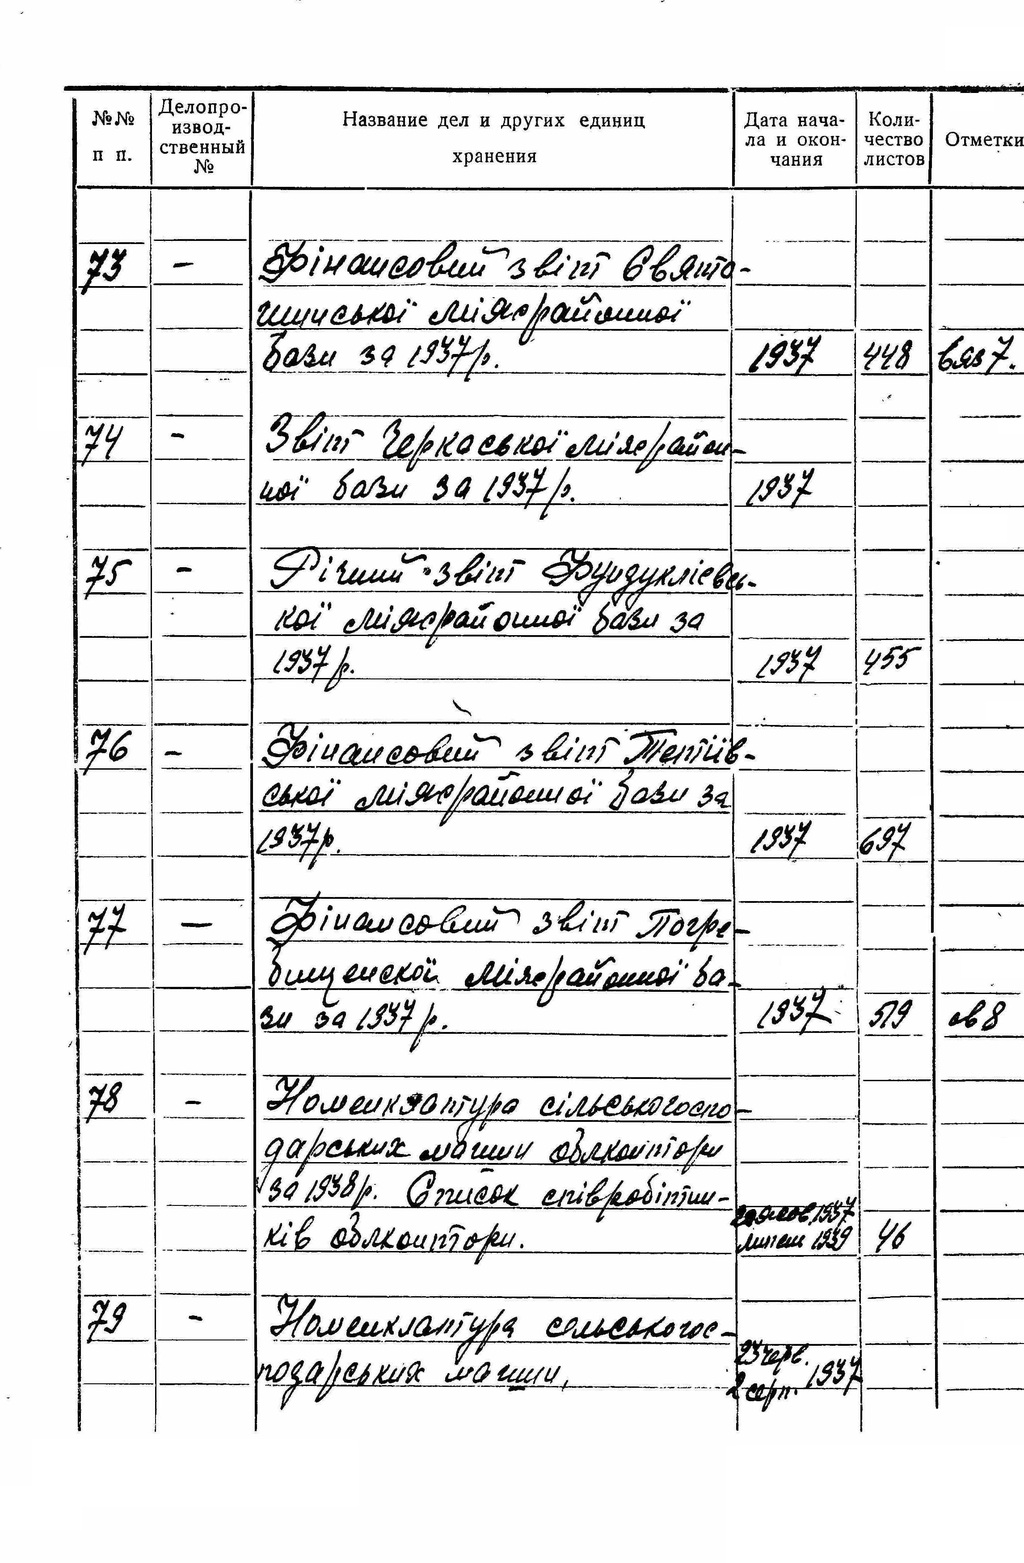 №№ п п. | Делопро-изводственный № | Название дел и других единиц хранения | Дата начала и окончания | Количество листов | Отметки
73 – Фінансовий звіт Свято-
шинської міжрайонної
бази за 1937 р. 1937 448 вяз 7.
74 – Звіт Черкаської міжрайон-
ної бази за 1937 р. 1937
75 – Річний звіт Фундукліївсь-
кої міжрайонної бази за
1937 р. 1937 455
76 – Фінансовий звіт Тетіїв-
ської міжрайонної бази за
1937 р. 1937 697
77 – Фінансовий звіт Погре-
бищенской міжрайонної ба-
зи за 1937 р. 1937 519 св 8
78 – Номенклатура сільськогоспо-
дарських машин облконтори
за 1938 р. Список співробітни-
жов. 1937
ків облконтори. липень 1939 46
79 – Номенклатура сельськогос-
23 черв.
подарських машин, 2 серп. 1937